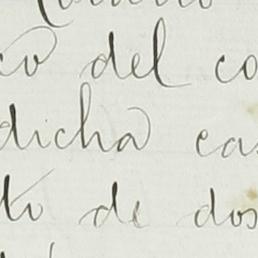 co del co
dicha cas
to de dos